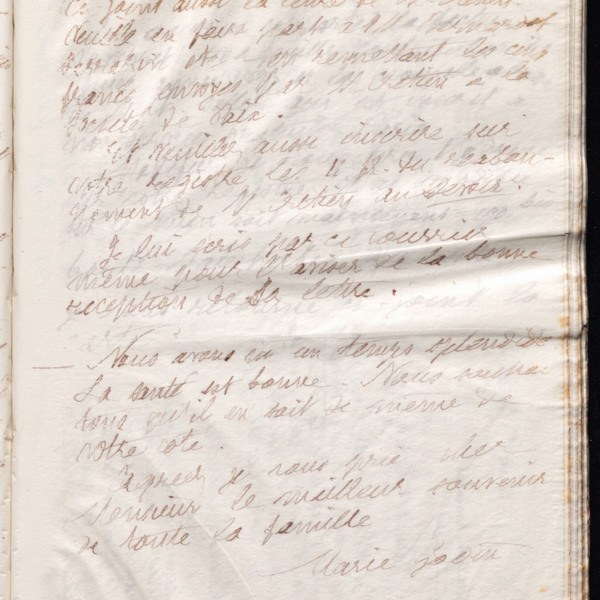 Ci joint aussi la lettre de M
Veuillez en faire part à M Bernardot
et en remettant les cinq
francs envoyés par M à la
Société de Paix.
Et veuillez aussi inscrire sur
votre registre les 4 fr. du réabon-
nement de M au Devoir.
Je lui écris par ce courrier
même pour l'aviser de la bonne
réception de sa lettre.
— Nous avons eu un temps splendide
La santé est bonne - Nous souhai
tons qu'il en soit de même de
votre côté.
Agréez je vous prie cher
Monsieur le meilleur souvenir
de toute la famille
Marie Godin